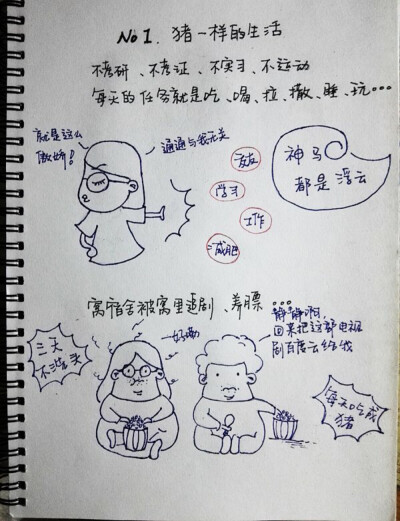 No 1. 猪一样的生活
不考研、不考证、不实习、不运动
每天的任务就是吃、喝、拉、撒、睡、玩…
就是这么
傲娇!
通通与我无关
交友
学习
工作
减肥
神马
都是浮云
窝宿舍被窝里追剧、养膘…
三天
不洗头
好嘞
静静啊,
回来把这部电视
剧百度云给我
每天吃成
猪